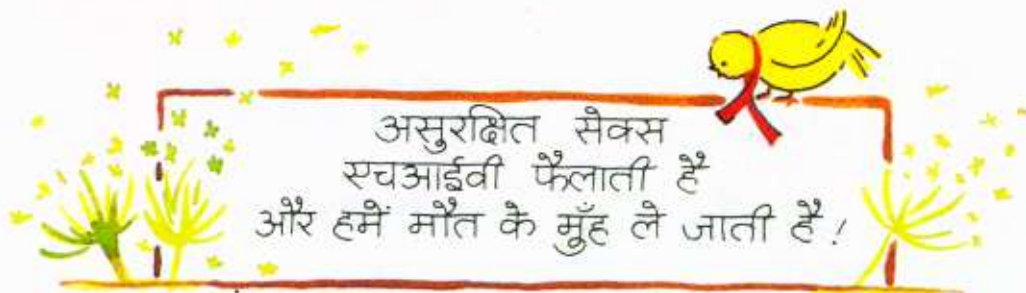 असुरक्षित सेक्स
एचआईवी फैलाती है
और हमें मौत के मुँह ले जाती है!